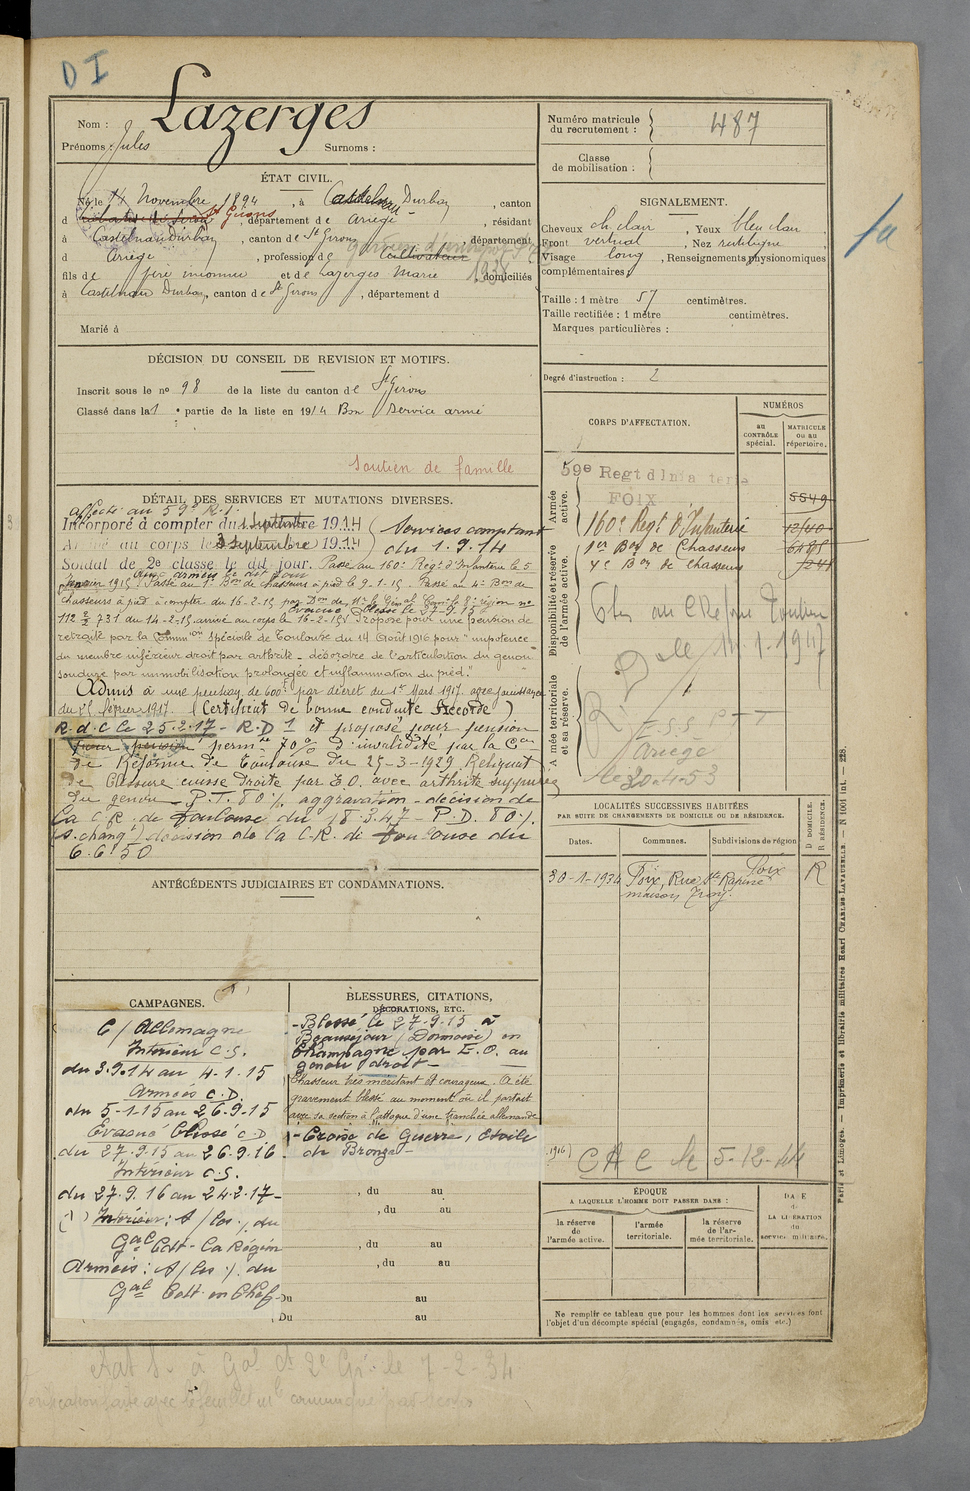 D I
Nom : Lazerges
Prénoms : Jules Surnoms :
ÉTAT CIVIL.
Né le 14 Novembre 1894, à Castelnau Durban, canton
d St Girons, département de Ariège, résidant
à Castelnau Durban, canton de St Girons, département
d Ariège, profession de Cultivateur
fils de père inconnu et de Lazerges Marie 1938, domiciliés
à Castelnau Durban, canton de St Girons, département d
Marié à
DÉCISION DU CONSEIL DE REVISION ET MOTIFS.
Inscrit sous le no 98 de la liste du canton de St Girons
Classé dans la 1e partie de la liste en 1914 Bon service armé
Soutien de famille
DÉTAIL DES SERVICES ET MUTATIONS DIVERSES.
affecté au 59e R.I.
Incorporé à compter du 1 Septembre 1914
Arrivé au corps le 3 Septembre 1914
Services comptant
du 1.9.14
Soldat de 2e classe le dit jour. Passé au 160e Régt d'Infanterie le 5
janvier 1915. Passé au 1er Bon de chasseurs à pied le 9-1-15. Passé au 4e Bon de
chasseurs à pied à compter du 16-2-15 par Don de Mr le Génal Comt la région no
112 2/2 731 du 14-2-15 arrivé au corps le 16-2-15. Evacué blessé le 27-9-15. Proposé pour une pension de
retraite par la Commion Spéciale de Toulouse du 14 Août 1916 pour "impotence
du membre inférieur droit par arthrite - désordre de l'articulation du genou
soudure par immobilisation prolongée et inflammation du pied."
Admis à une pension de 600f par décret du 1er Mars 1917 avec jouissance
du 25 février 1917. (Certificat de bonne conduite Accordé)
R.d.C le 25.2.17 - R.D 1 et proposé pour pension
pour pension permte 70% d'invalidité par la Con
de Réforme de Toulouse du 25-3-1929 Reliquat
de blessure cuisse droite par E.O. avec arthrite suppurée
du genou - P.T. 80% aggravation - décision de
la C.R. de Toulouse du 18.3.47 - P.D. 80%
(s. changt) décision de la C.R. de Toulouse du
6.6.50
ANTÉCÉDENTS JUDICIAIRES ET CONDAMNATIONS.
CAMPAGNES. (1)
C/ Allemagne
Intérieur C.S.
du 3.9.14 au 4-1-15
Armées C.D.
du 5-1-15 au 26.9-15
Evacué Blessé C.D
du 27.9.15 au 26.9.16
Intérieur C.S.
du 27.9.16 au 24.2.17-
(1) Intérieur : A/ les % du
Gal Cdt - la Région
Armées : A/ les % du
Gal Cdt en Chef
BLESSURES, CITATIONS,
DÉCORATIONS, ETC.
- Blessé le 27.9.15 à
Beauséjour (Dormoise) en
Champagne par E.O. au
genou droit -
Chasseur très méritant et courageux. A été
gravement blessé au moment où il partait
avec sa section à l'attaque d'une tranchée allemande
- Croix de Guerre, étoile
de Bronze -
, du au
, du au
, du au
, du au
Du au
, Du au
Numéro matricule
du recrutement : 487
Classe
de mobilisation :
SIGNALEMENT.
Cheveux ch clair, Yeux bleu clair
Front vertical, Nez rectiligne
Visage long, Renseignements physionomiques
complémentaires
Taille : 1 mètre 57 centimètres.
Taille rectifiée : 1 mètre centimètres.
Marques particulières :
Degré d'instruction : 2
CORPS D'AFFECTATION.
NUMÉROS
au
CONTRÔLE
spécial.
MATRICULE
ou au
répertoire.
Armée
active.
59e Regt d'Infanterie
FOIX 5549
160e Régt d'Infanterie
1er Bon de Chasseurs
4e Bon de Chasseurs
Disponibilité et réserve
de l'armée active.
14.1.1917
Armée territoriale
et sa réserve.
Ariège
le 30-4-53
LOCALITÉS SUCCESSIVES HABITÉES
PAR SUITE DE CHANGEMENTS DE DOMICILE OU DE RÉSIDENCE.
Dates. Communes. Subdivisions de région D DOMICILE. R RÉSIDENCE.
30-1-1934 Foix, Rue Foix R
maison
CAC le 5-12-44
ÉPOQUE
A LAQUELLE L'HOMME DOIT PASSER DANS :
la réserve
de
l'armée active.
l'armée
territoriale.
la réserve
de l'ar-
mée territoriale.
DATE
de
LA LIBÉRATION
du
service militaire.
Ne remplir ce tableau que pour les hommes dont les services font
l'objet d'un décompte spécial (engagés, condamnés, omis etc.)
Paris et Limoges. — Imprimerie et librairie militaires Henri CHARLES-LAVAUZELLE. — N 1001 int. — 228.
le 7-2-34